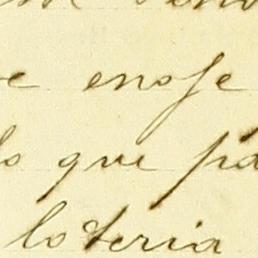 enoje
lo que pa
loteria